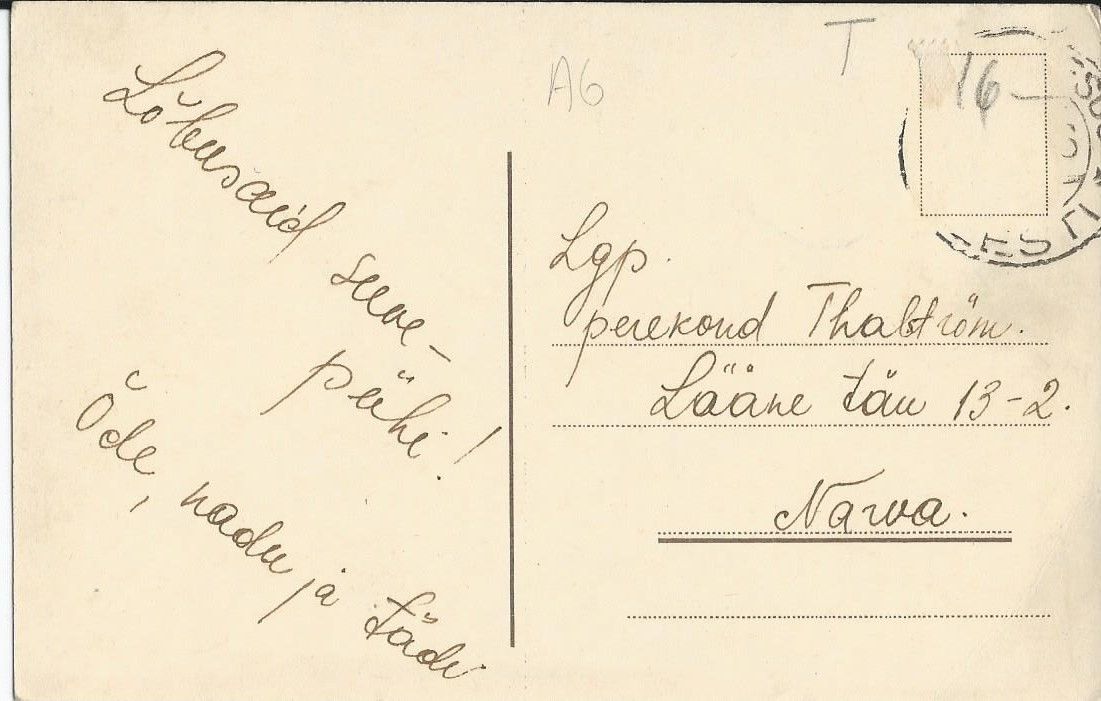 Lõbusaid suve-
pühi!
Õde, nadu ja tädi
A6
T
16
EESTI
Lgp.
perekond Thalström.
Lääne tän 13-2.
Narva.